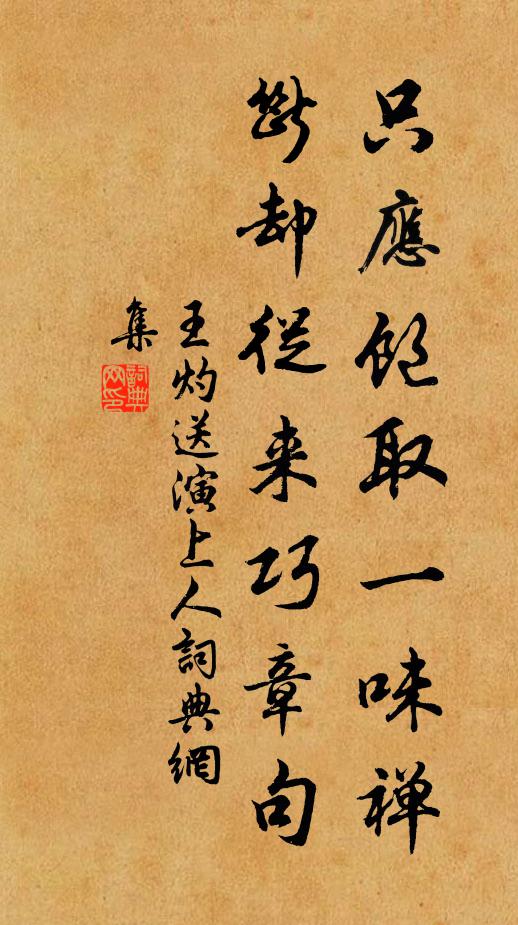 只應飽取一味禅
斷却從来巧章句
王灼送演上人詞典網
集
詞典網印